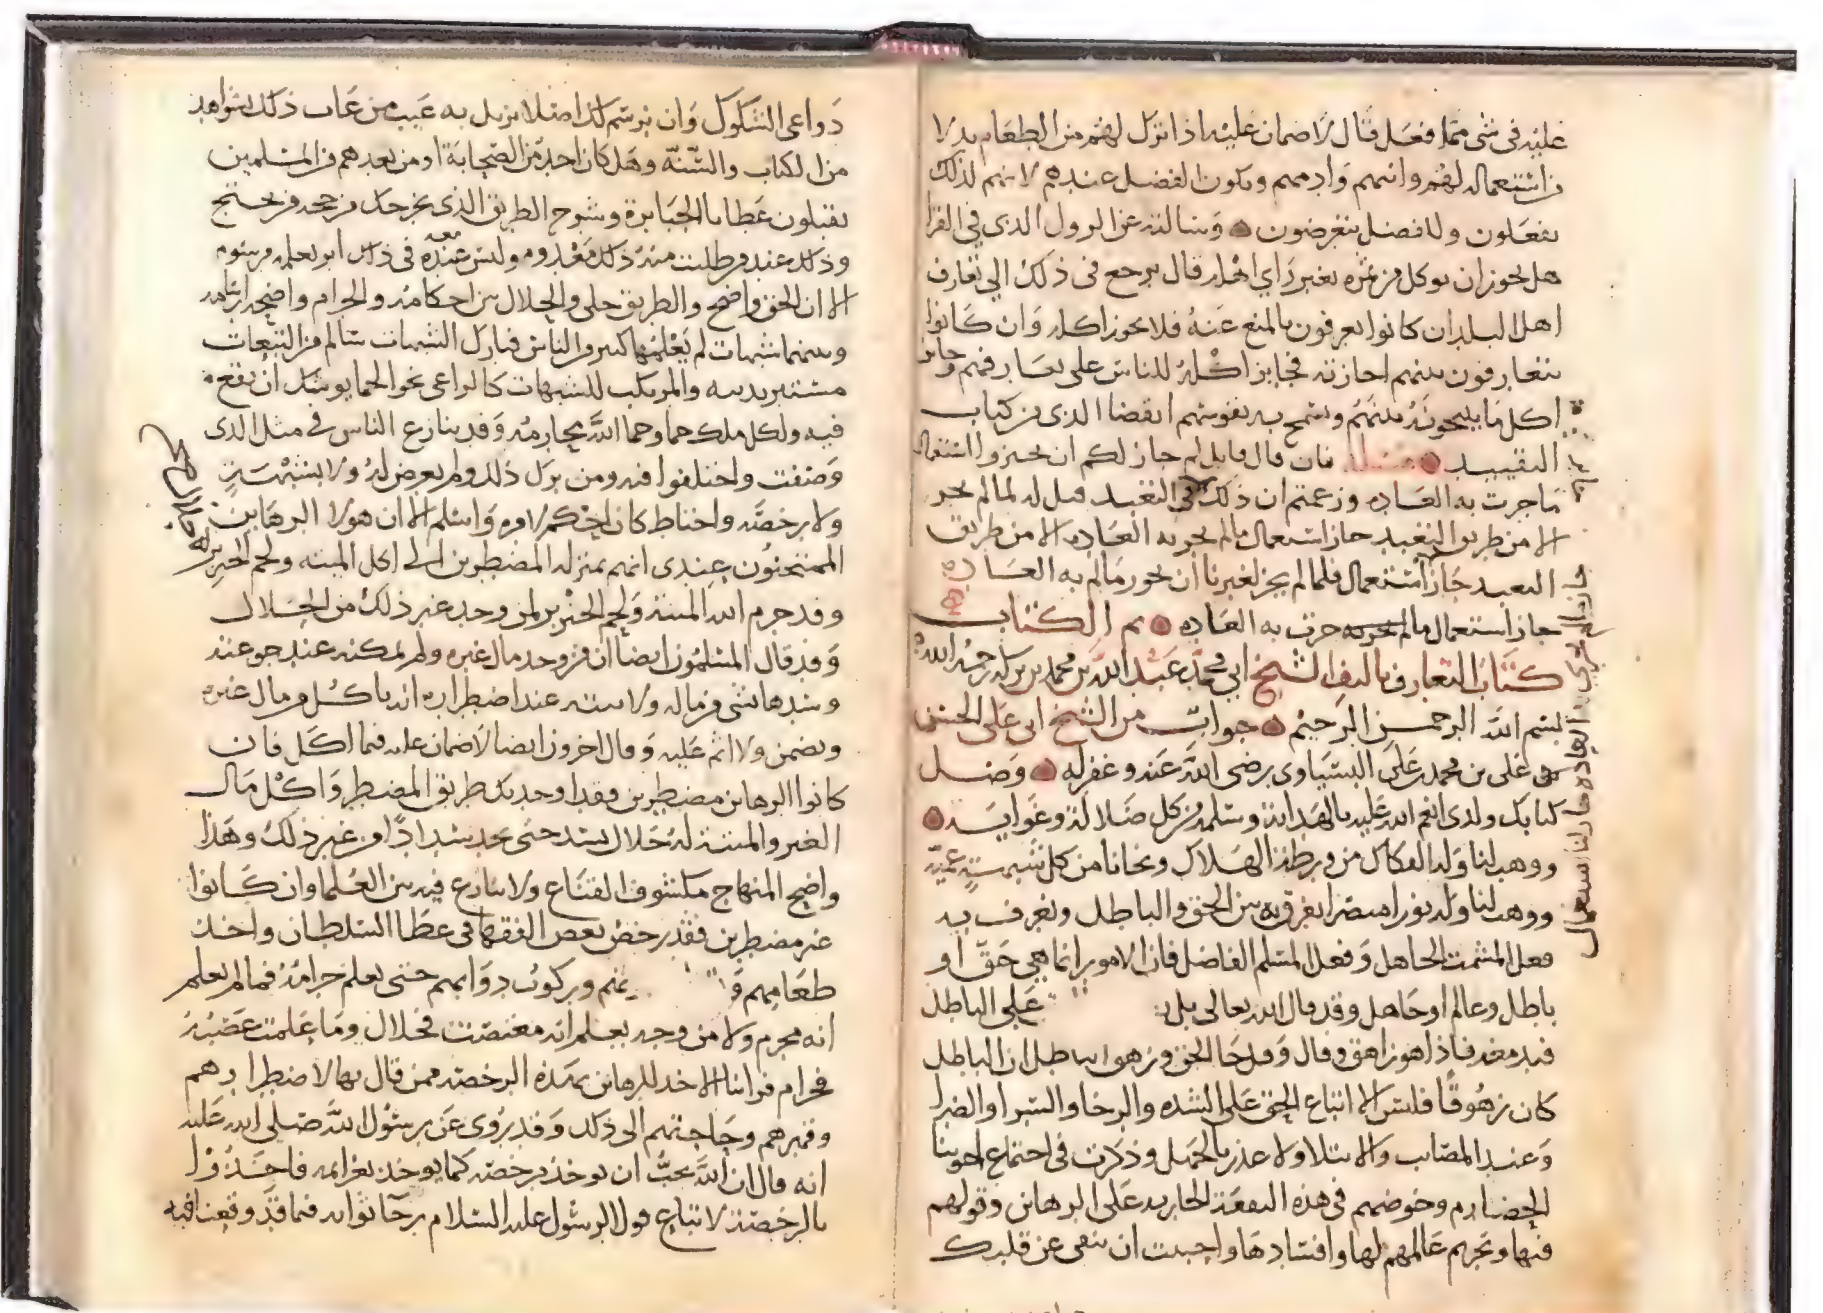 عليه في شي مما فعل قال لا ضمان عليه اذا نزل لهم من الطعام بدلا
من استعماله لهم وانيتهم وادمهم ويكون الفضل عندهم لانهم لذلك
يفعلون ولا فضل يتعرضون وسالته عن الذي في القرا
هل يجوز ان يوكل من ثمره بغير راي اهله قال يرجع في ذلك الى تعارف
اهل البلد ان كانوا يعرفون بالمنع عنه فلا يجوز اكله وان كانوا
يتعارفون بينهم اجازته فجايز اكله للناس على تعارفهم وجايز
اكل ما يبيحونه بينهم وتسمح به نفوسهم انقضا الذي من كتاب
التقييد مسئلة فان قال قايل لم جاز لكم ان تجيزوا استعمال
ما جرت به العاده وزعمتم ان ذلك في التعبد قيل له لما لم يجز
الا من طريق التعبد جاز استعمال ما لم تجر به العاده الا من طريق
التعبد جاز استعمال فلما لم يجز لغيرنا ان يجوز ما لم به العاده
جاز استعمال ما لم تجر به جرت به العاده تم الكتاب
كتاب التعارف تاليف الشيخ ابي محمد عبد الله بن محمد بن بركه رحمه الله
بسم الله الرحمن الرحيم جواب من الشيخ ابي علي الحسن
بن علي بن محمد بن علي البسياوي رضي الله عنه وغفر له وصل
كتابك ولدي انعم الله عليه بالهدايه وسلمه من كل ضلاله وغوايه
ووهب لنا وله الفكاك من ورطة الهلاك ونجانا من كل شبهة عميه
ووهب لنا وله نورا مبصرا يفرق به بين الحق والباطل ونعرف به
فعل المشمت الجاهل وفعل المسلم الفاضل فان الامور انما هي حق او
باطل وعالم او جاهل وقد قال الله تعالى بل على الباطل
فيدمغه فاذا هو زاهق وقال وقل جا الحق وزهق الباطل ان الباطل
كان زهوقا فليس الا اتباع الحق على الشده والرخا والسرا والضرا
وعند المصايب والابتلا ولا عذر بالجهل وذكرت في اجتماع اخوننا
الحضارم وخوضهم في هذه البقعة الجاريه على الرهاين وقولهم
فيها وتحريم عالمهم لها وافسادها واحببت ان تنفي عن قلبك
دواعي الشكوك وان نرسم لك اصلا نزيل به عيب من عاب ذلك بشواهد
من الكتاب والسنة وهل كان احد من الصحابة او من بعدهم من المسلمين
يقبلون عطايا الجبابرة وشرح الطريق الذي يخرجك من حجة من يحتج
وذلك عند من طلبت منه ذلك معدوم وليس عنده معه في ذلك اثر يعلمه مرسوم
الا ان الحق واضح والطريق جلي والحلال بين احكامه والحرام واضحه اثامه
وبينهما شبهات لم يعلمها كثير من الناس فتارك الشبهات سالم من التبعات
مستبر بدينه والمرتكب للشبهات كالراعي نحو الحما يوشك ان يقع
فيه ولكل ملك حما وحما الله محارمه وقد ينازع الناس في مثل الذي
وصفت واختلفوا فيه ومن ترك ذلك ولم يعرض له ولا لشبهة
ولا برخصه واحتاط كان احكم لامره واسلم الا ان هولا الرهاين
الممتحنون عندي انهم بمنزلة المضطرين الى اكل الميته ولحم الخنزير
وقد حرم الله الميتة ولحم الخنزير لمن وجد غير ذلك من الحلال
وقد قال المسلمون ايضا ان من وجد مال غيره ولم يمكنه عند جوعه
وسدها شي من ماله ولا ميته عند اضطراره انه ياكل من مال غيره
ويضمن ولا اثم عليه وقال اخرون ايضا لا ضمان عليه فيما اكل فان
كانوا الرهاين مضطرين فقد اوجدتك طريق المضطر واكل مال
الغير والميتة له حلال حتى يجد سدادا من غير ذلك وهذا
واضح المنهاج مكشوف القناع ولا تنازع فيه بين العلما وان كانوا
غير مضطرين فقد رخص بعض الفقها في عطا السلطان واخذ
طعامهم و وركوب دوابهم حتى يعلم حرامه فما لم يعلم
انه محرم ولا من وجه يعلم انه مغتصب فحلال وما علمت غصبه
فحرام فراينا الاخذ للرهاين بهذه الرخصة ممن قال بها لاضطرارهم
وقهرهم وحاجتهم الى ذلك وقد يروى عن رسول الله صلى الله عليه
انه قال ان الله يحب ان يوخذ برخصه كما يوخذ بعزايمه فاخذوا
بالرخصة لاتباع قول الرسول عليه السلام رجا ثوابه فما قد وقعنا فيه